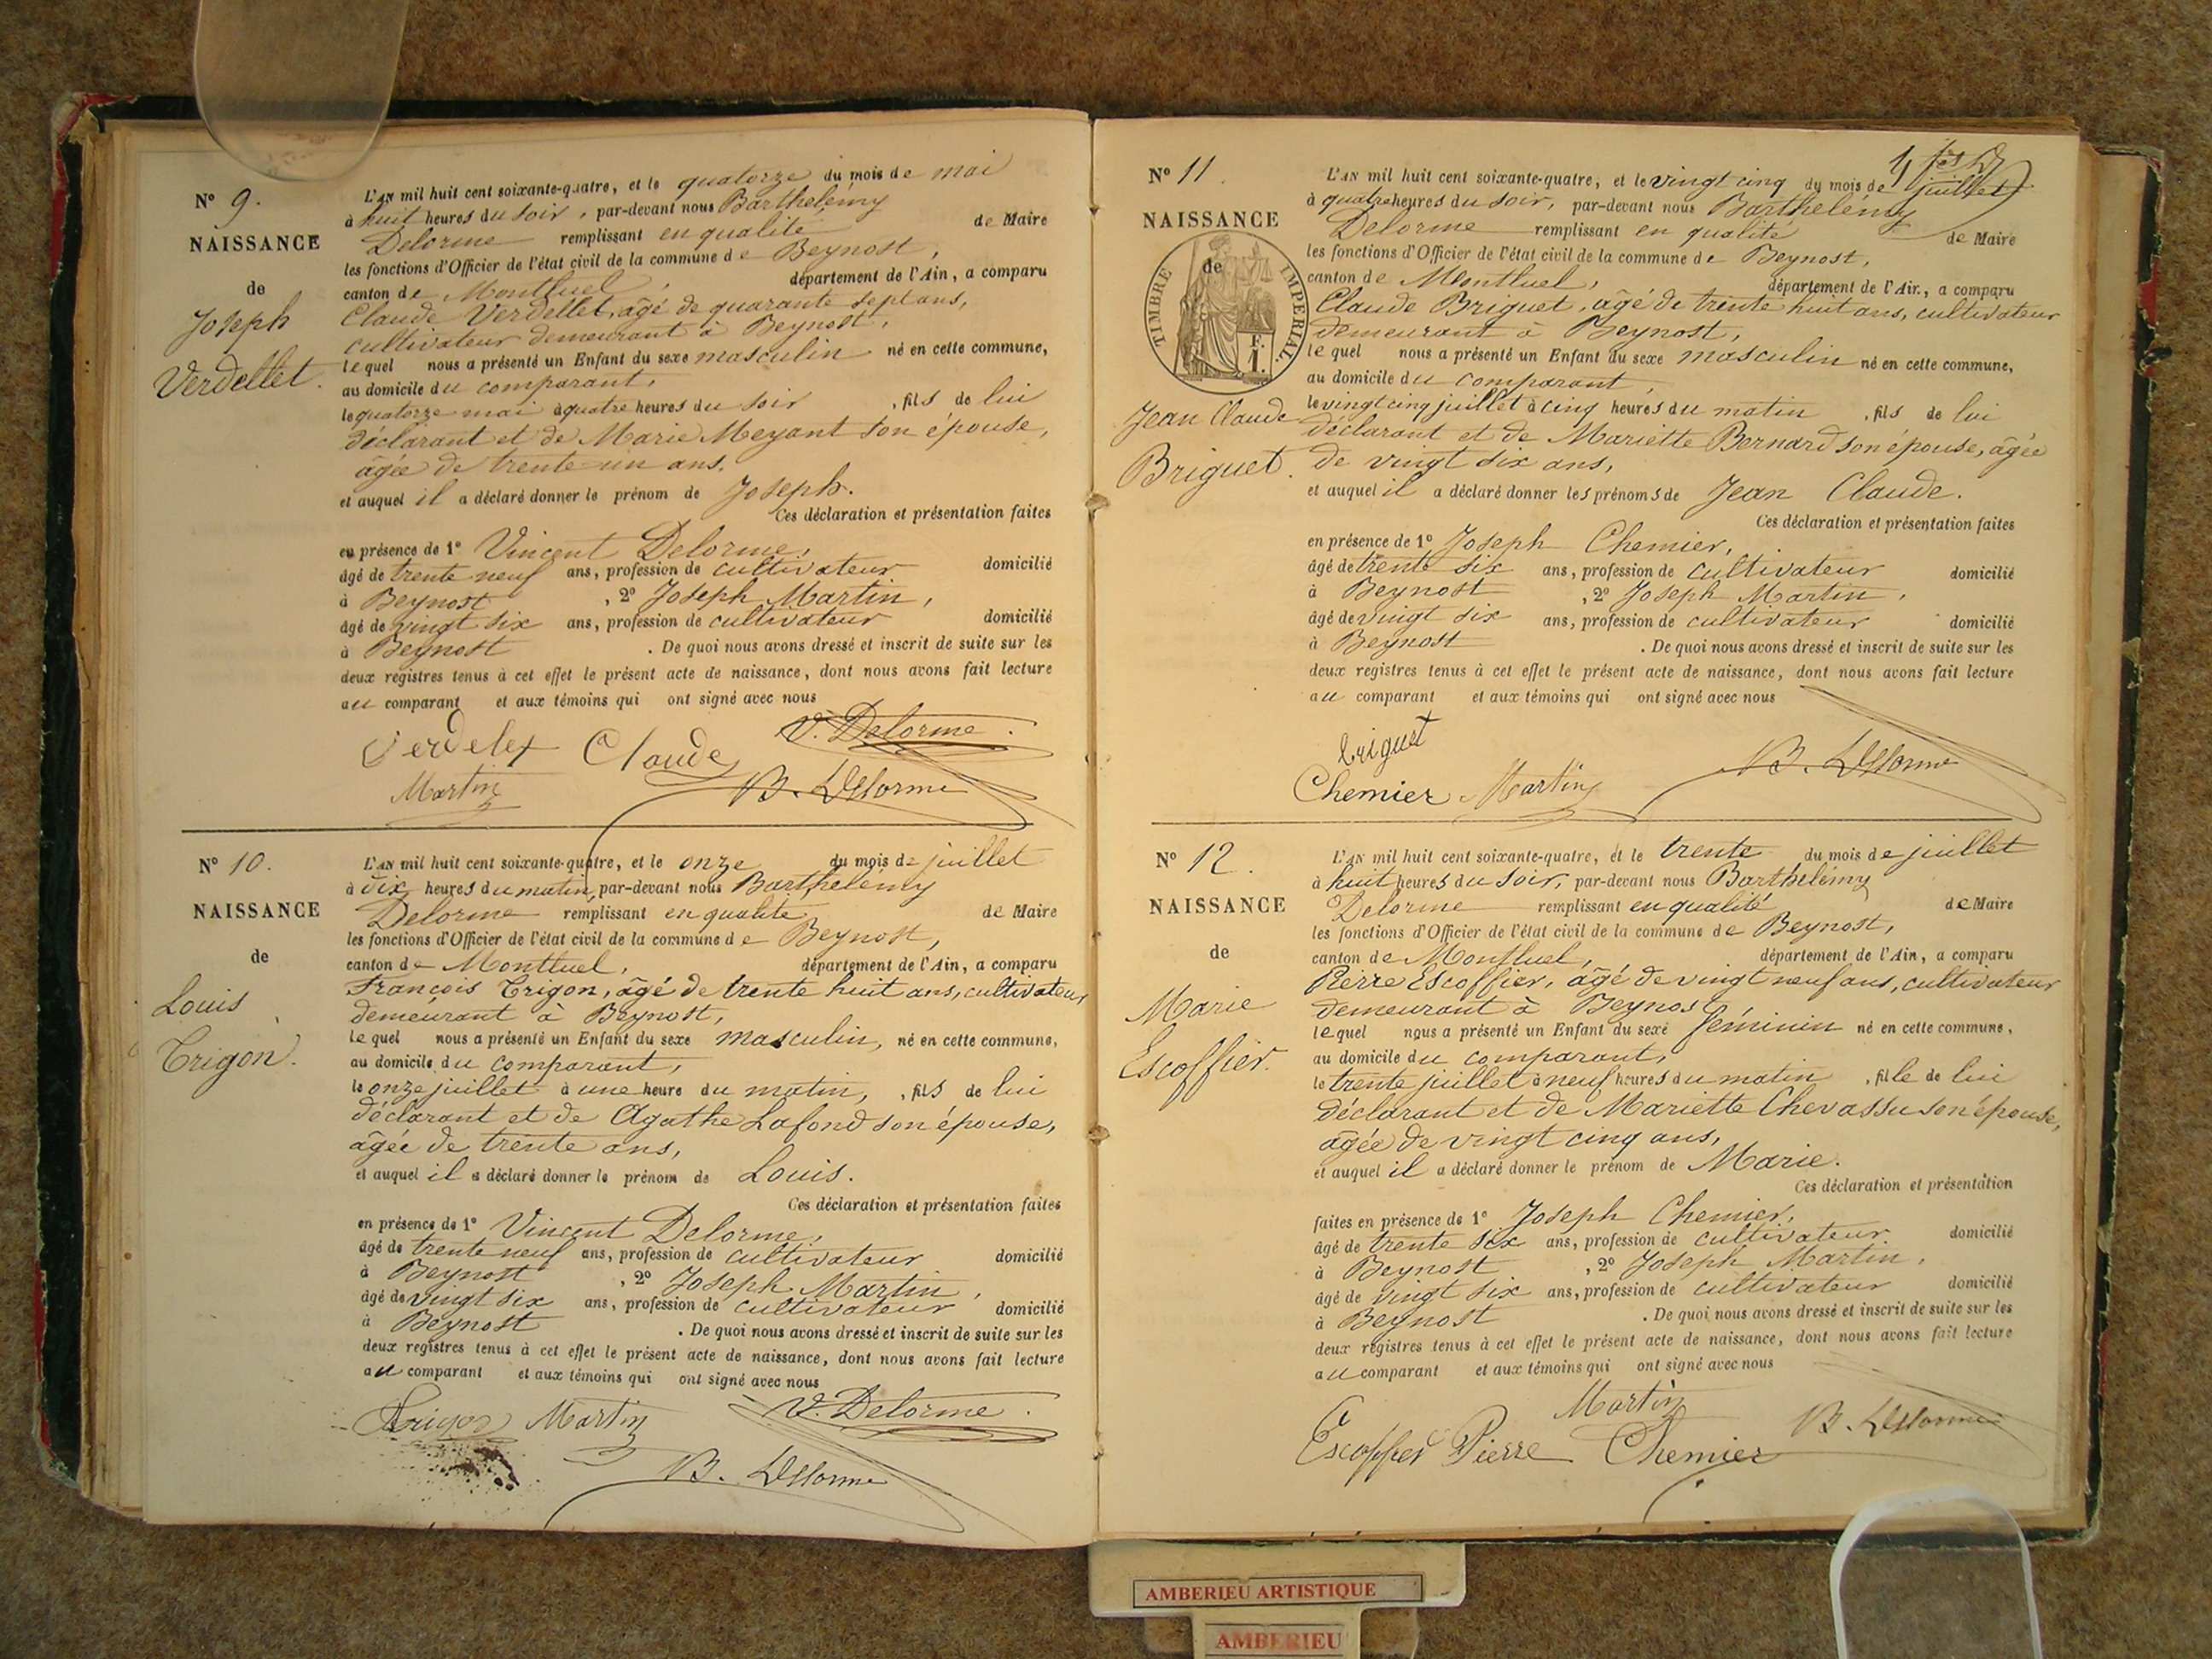 N° 9.
NAISSANCE
de
Joseph
Verdellet.
L'AN mil huit cent soixante-quatre, et le quatorze du mois de mai
à huit heures du soir, par-devant nous Barthelémy
Delorme remplissant en qualité de Maire
les fonctions d'Officier de l'état civil de la commune de Beynost,
canton de Montluel, département de l'Ain, a comparu
Claude Verdellet, âgé de quarante sept ans,
cultivateur demeurant à Beynost,
lequel nous a présenté un Enfant du sexe masculin né en cette commune,
au domicile du comparant,
le quatorze mai à quatre heures du soir, fils de lui
déclarant et de Marie Meyant son épouse,
âgée de trente-un ans.
et auquel il a déclaré donner le prénom de Joseph.
Ces déclaration et présentation faites
en présence de 1° Vincent Delorme,
âgé de trente neuf ans, profession de cultivateur domicilié
à Beynost, 2° Joseph Martin,
âgé de vingt six ans, profession de cultivateur domicilié
à Beynost. De quoi nous avons dressé et inscrit de suite sur les
deux registres tenus à cet effet le présent acte de naissance, dont nous avons fait lecture
au comparant et aux témoins qui ont signé avec nous
Verdelet Claude V. Delorme
Martin B. Delorme
N° 10.
NAISSANCE
de
Louis
Trigon.
L'AN mil huit cent soixante-quatre, et le onze du mois de juillet
à dix heures du matin, par-devant nous Barthelémy
Delorme remplissant en qualité de Maire
les fonctions d'Officier de l'état civil de la commune de Beynost,
canton de Montluel, département de l'Ain, a comparu
François Trigon, âgé de trente huit ans, cultivateur
demeurant à Beynost,
lequel nous a présenté un Enfant du sexe masculin, né en cette commune,
au domicile du comparant,
le onze juillet à une heure du matin, fils de lui
déclarant et de Agathe Lafond son épouse,
âgée de trente ans,
et auquel il a déclaré donner le prénom de Louis.
Ces déclaration et présentation faites
en présence de 1° Vincent Delorme,
âgé de trente neuf ans, profession de cultivateur domicilié
à Beynost, 2° Joseph Martin,
âgé de vingt six ans, profession de cultivateur domicilié
à Beynost. De quoi nous avons dressé et inscrit de suite sur les
deux registres tenus à cet effet le présent acte de naissance, dont nous avons fait lecture
au comparant et aux témoins qui ont signé avec nous
Trigon Martin V. Delorme
B. Delorme
N° 11.
NAISSANCE
de
TIMBRE IMPÉRIAL
1 F.
Jean Claude
Briguet.
L'AN mil huit cent soixante-quatre, et le vingt cinq du mois de juillet
à quatre heures du soir, par-devant nous Barthelémy
Delorme remplissant en qualité de Maire
les fonctions d'Officier de l'état civil de la commune de Beynost,
canton de Montluel, département de l'Ain, a comparu
Claude Briguet, âgé de trente huit ans, cultivateur
demeurant à Beynost,
lequel nous a présenté un Enfant du sexe masculin né en cette commune,
au domicile du comparant,
le vingt cinq juillet à cinq heures du matin, fils de lui
déclarant et de Mariette Bernard son épouse, âgée
de vingt six ans,
et auquel il a déclaré donner les prénoms de Jean Claude.
Ces déclaration et présentation faites
en présence de 1° Joseph Chemier,
âgé de trente six ans, profession de cultivateur domicilié
à Beynost, 2° Joseph Martin,
âgé de vingt six ans, profession de cultivateur domicilié
à Beynost. De quoi nous avons dressé et inscrit de suite sur les
deux registres tenus à cet effet le présent acte de naissance, dont nous avons fait lecture
au comparant et aux témoins qui ont signé avec nous
briguet
Chemier Martin B. Delorme
N° 12.
NAISSANCE
de
Marie
Escoffier.
L'AN mil huit cent soixante-quatre, et le trente du mois de juillet
à huit heures du soir, par-devant nous Barthélémy
Delorme remplissant en qualité de Maire
les fonctions d'Officier de l'état civil de la commune de Beynost,
canton de Montluel, département de l'Ain, a comparu
Pierre Escoffier, âgé de vingt neuf ans, cultivateur
demeurant à Beynost,
lequel nous a présenté un Enfant du sexe féminin né en cette commune,
au domicile du comparant,
le trente juillet à neuf heures du matin, fille de lui
déclarant et de Mariette Chevassu son épouse,
âgée de vingt cinq ans,
et auquel il a déclaré donner le prénom de Marie.
Ces déclaration et présentation
faites en présence de 1° Joseph Chemier,
âgé de trente six ans, profession de cultivateur domicilié
à Beynost, 2° Joseph Martin,
âgé de vingt six ans, profession de cultivateur domicilié
à Beynost. De quoi nous avons dressé et inscrit de suite sur les
deux registres tenus à cet effet le présent acte de naissance, dont nous avons fait lecture
au comparant et aux témoins qui ont signé avec nous
Martin
Escoffier Pierre Chemier B. Delorme
AMBERIEU ARTISTIQUE
AMBERIEU